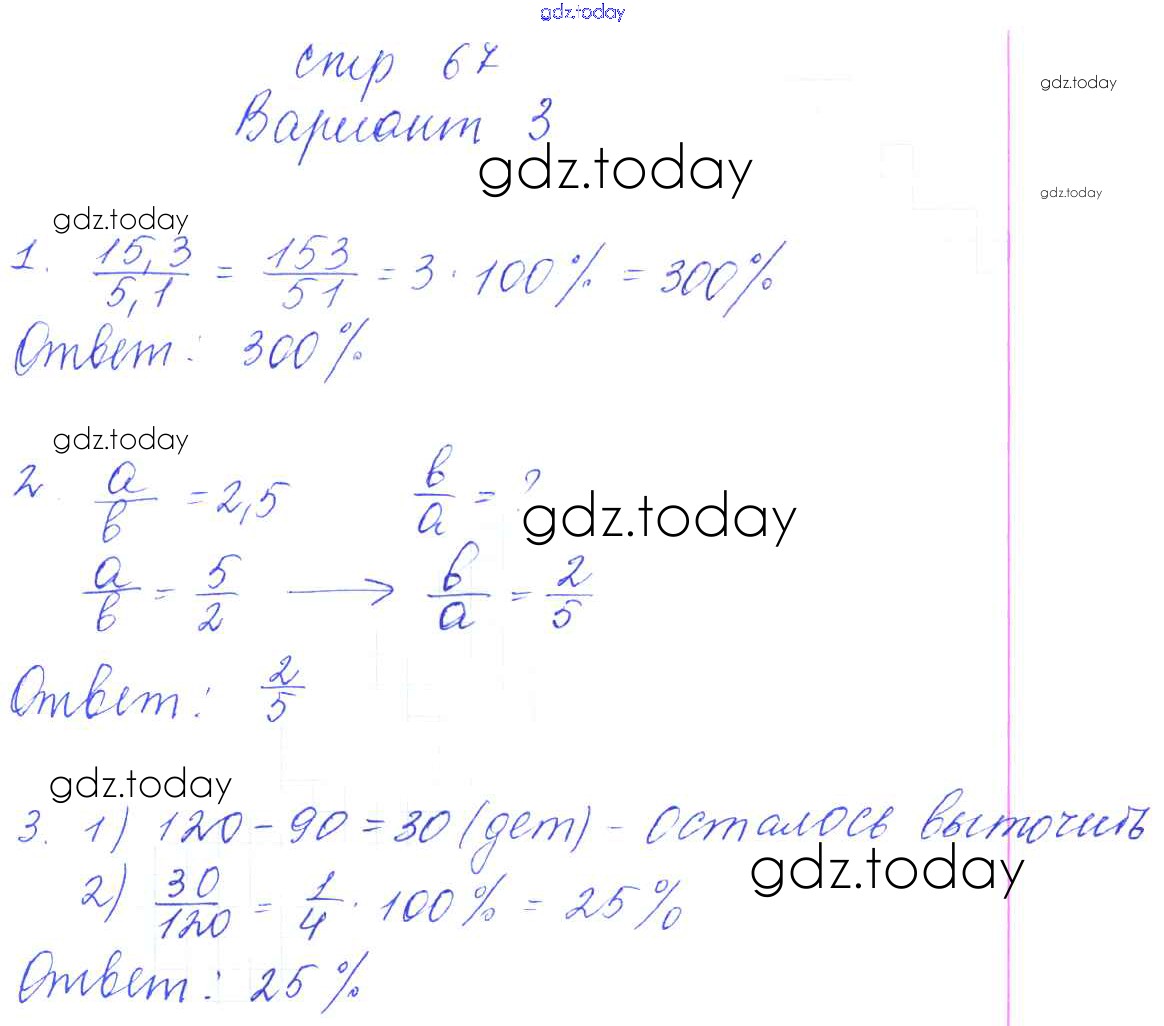 gdz.today
стр 67
gdz.today
Вариант 3
gdz.today
gdz.today
gdz.today
1. 15,3/5,1 = 153/51 = 3 · 100% = 300%
Ответ: 300%
gdz.today
2. a/в = 2,5 в/a = ?
gdz.today
a/в = 5/2 → в/a = 2/5
Ответ: 2/5
gdz.today
3. 1) 120 - 90 = 30 (дет) - осталось выточить
gdz.today
2) 30/120 = 1/4 · 100% = 25%
Ответ: 25%